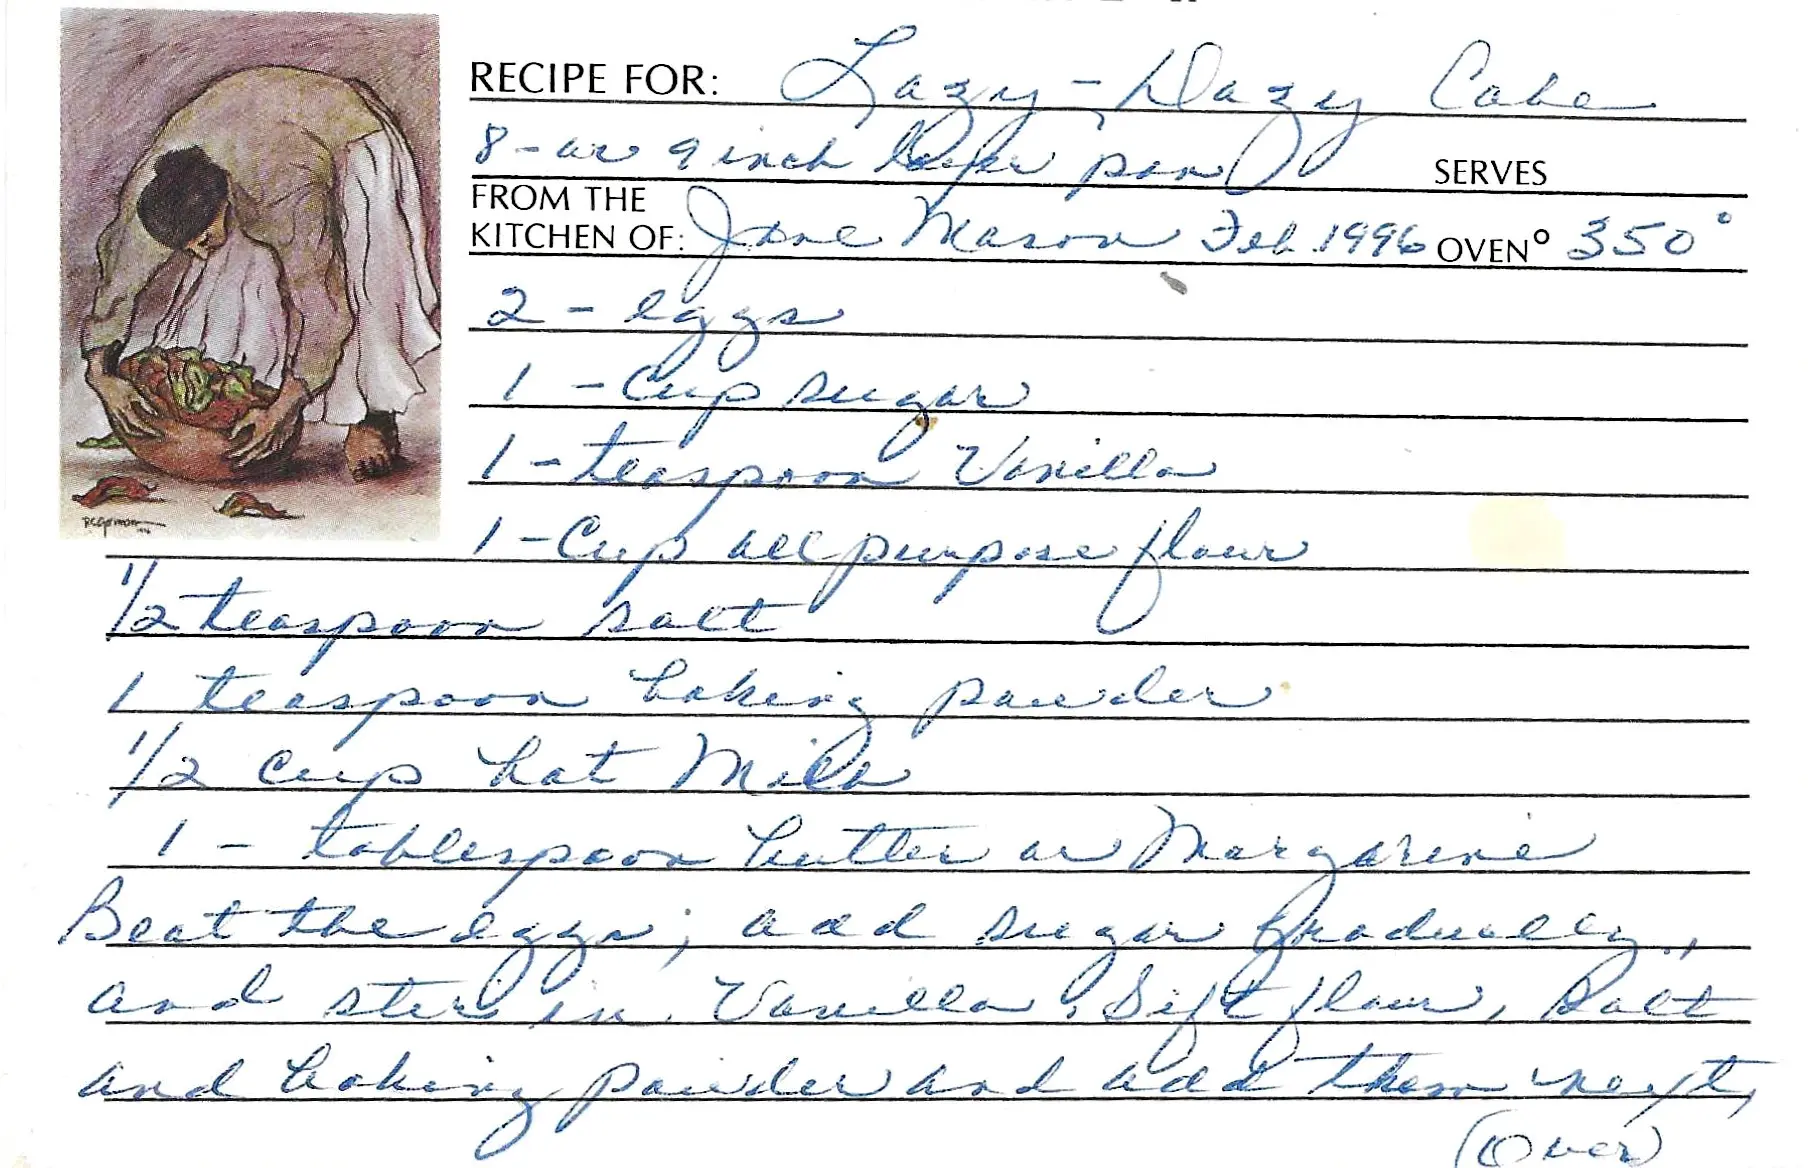 RECIPE FOR: Lazy-Dazy Cake
8-or 9 inch layer pan SERVES
FROM THE
KITCHEN OF: Jane Mason Feb. 1996 OVEN° 350°
2 - eggs
1 - Cup sugar
1 - teaspoon Vanilla
1 - Cup all purpose flour
1/2 teaspoon salt
1 teaspoon baking powder
1/2 cup hot Milk
1 - tablespoon butter or Margarine
Beat the eggs, add sugar Gradually,
and stir in Vanilla. Sift flour, Salt
and baking powder and add them next,
(Over)
R.C. Gorman